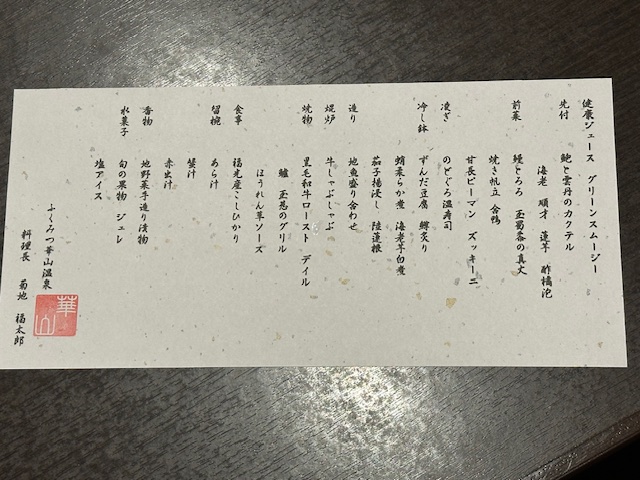 健康ジュース グリーンスムージー
先付 鮑と雲丹のカクテル
海老 順才 蓮芋 酢橘泡
前菜 鰻とろろ 玉蜀黍の真丈
焼き帆立 合鴨
甘長ピーマン ズッキーニ
凌ぎ のどぐろ温寿司
冷し鉢 ずんだ豆腐 鱒炙り
蛸柔らか煮 海老芋白煮
茄子揚浸し 陸蓮根
造り 地魚盛り合わせ
焜炉 牛しゃぶしゃぶ
焼物 黒毛和牛ロースト デイル
鱸 玉葱のグリル
ほうれん草ソース
食事 福光産こしひかり
留椀 あら汁
蟹汁
赤出汁
香物 地野菜手造り漬物
水菓子 旬の果物 ジュレ
塩アイス
ふくみつ華山温泉
料理長 菊地 福太郎
華山